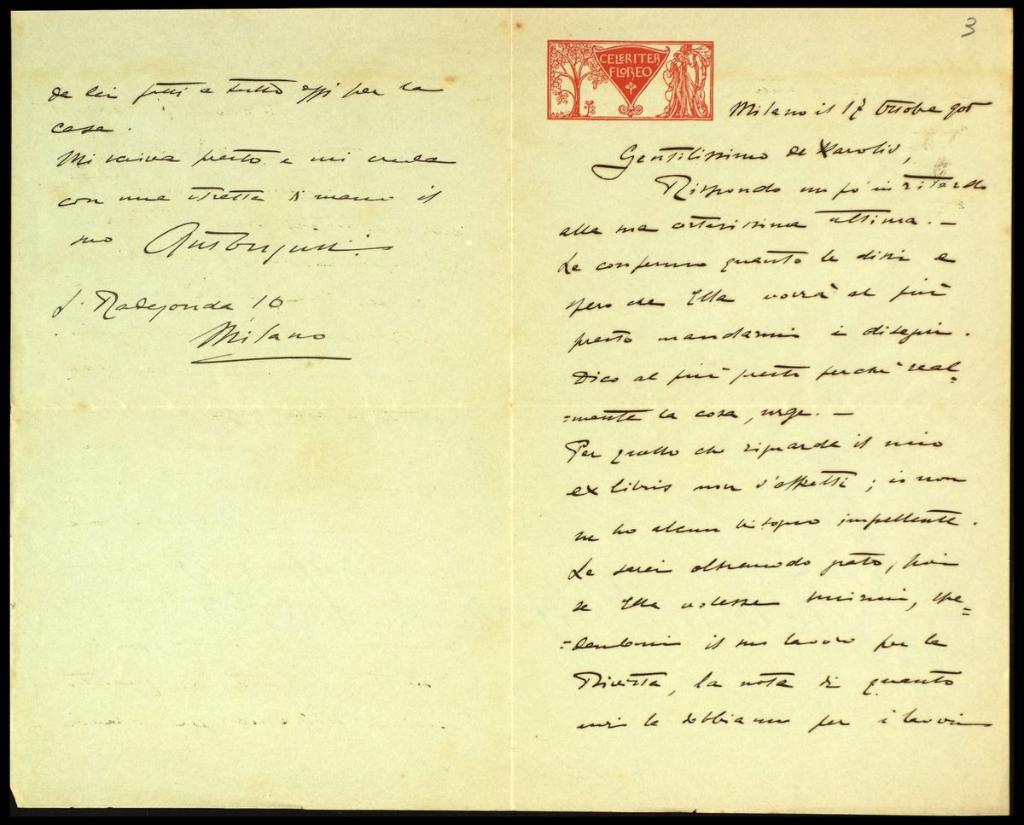 3
CELERITER
FLOREO
Milano il 17 Ottobre 905
Gentilissimo de Karolis,
Rispondo un pò in ritardo
alla sua cortesissima ultima. —
Le confermo quanto le dissi e
spero che Ella vorrà al più
presto mandarmi i disegni.
Dico al più presto perchè real=
=mente la cosa, urge. —
Per quello che riguarda il mio
ex libris non s'affretti; io non
ne ho alcun bisogno impellente.
Le sarei oltremodo grato, poi
se Ella volesse unirmi, spe=
=dendomi il suo lavoro per la
Rivista, la nota di quanto
noi le dobbiamo per i lavori
da lei fatti a tutt'oggi per la
casa.
Mi scriva presto e mi creda
con una stretta di mano il
suo
S. Radegonda 10
Milano